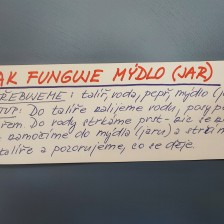 AK FUNGUJE MÝDLO (JAR)
ŘEBUJEME: talíř, voda, pepř, mýdlo (j
Do talíře nalijeme vodu, posype
řem. Do vody strčíme prst - nic se
namočíme do mýdla (jaru) a strčí
talíře a pozorujeme, co se děje.